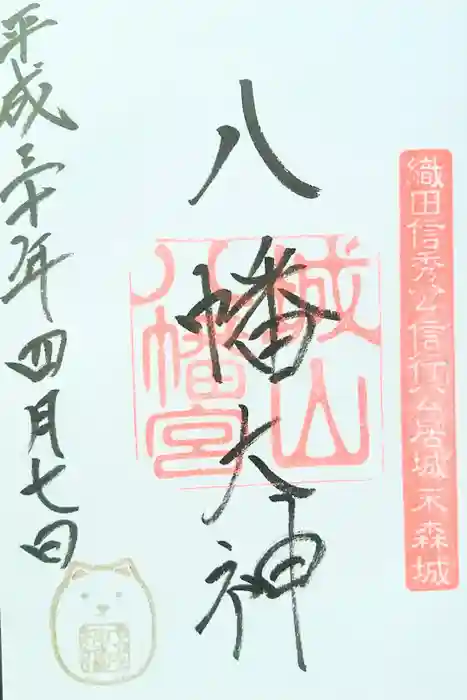 織田信秀公信行公居城末森城
八幡大神
城山八幡宮
平成三十年四月七日